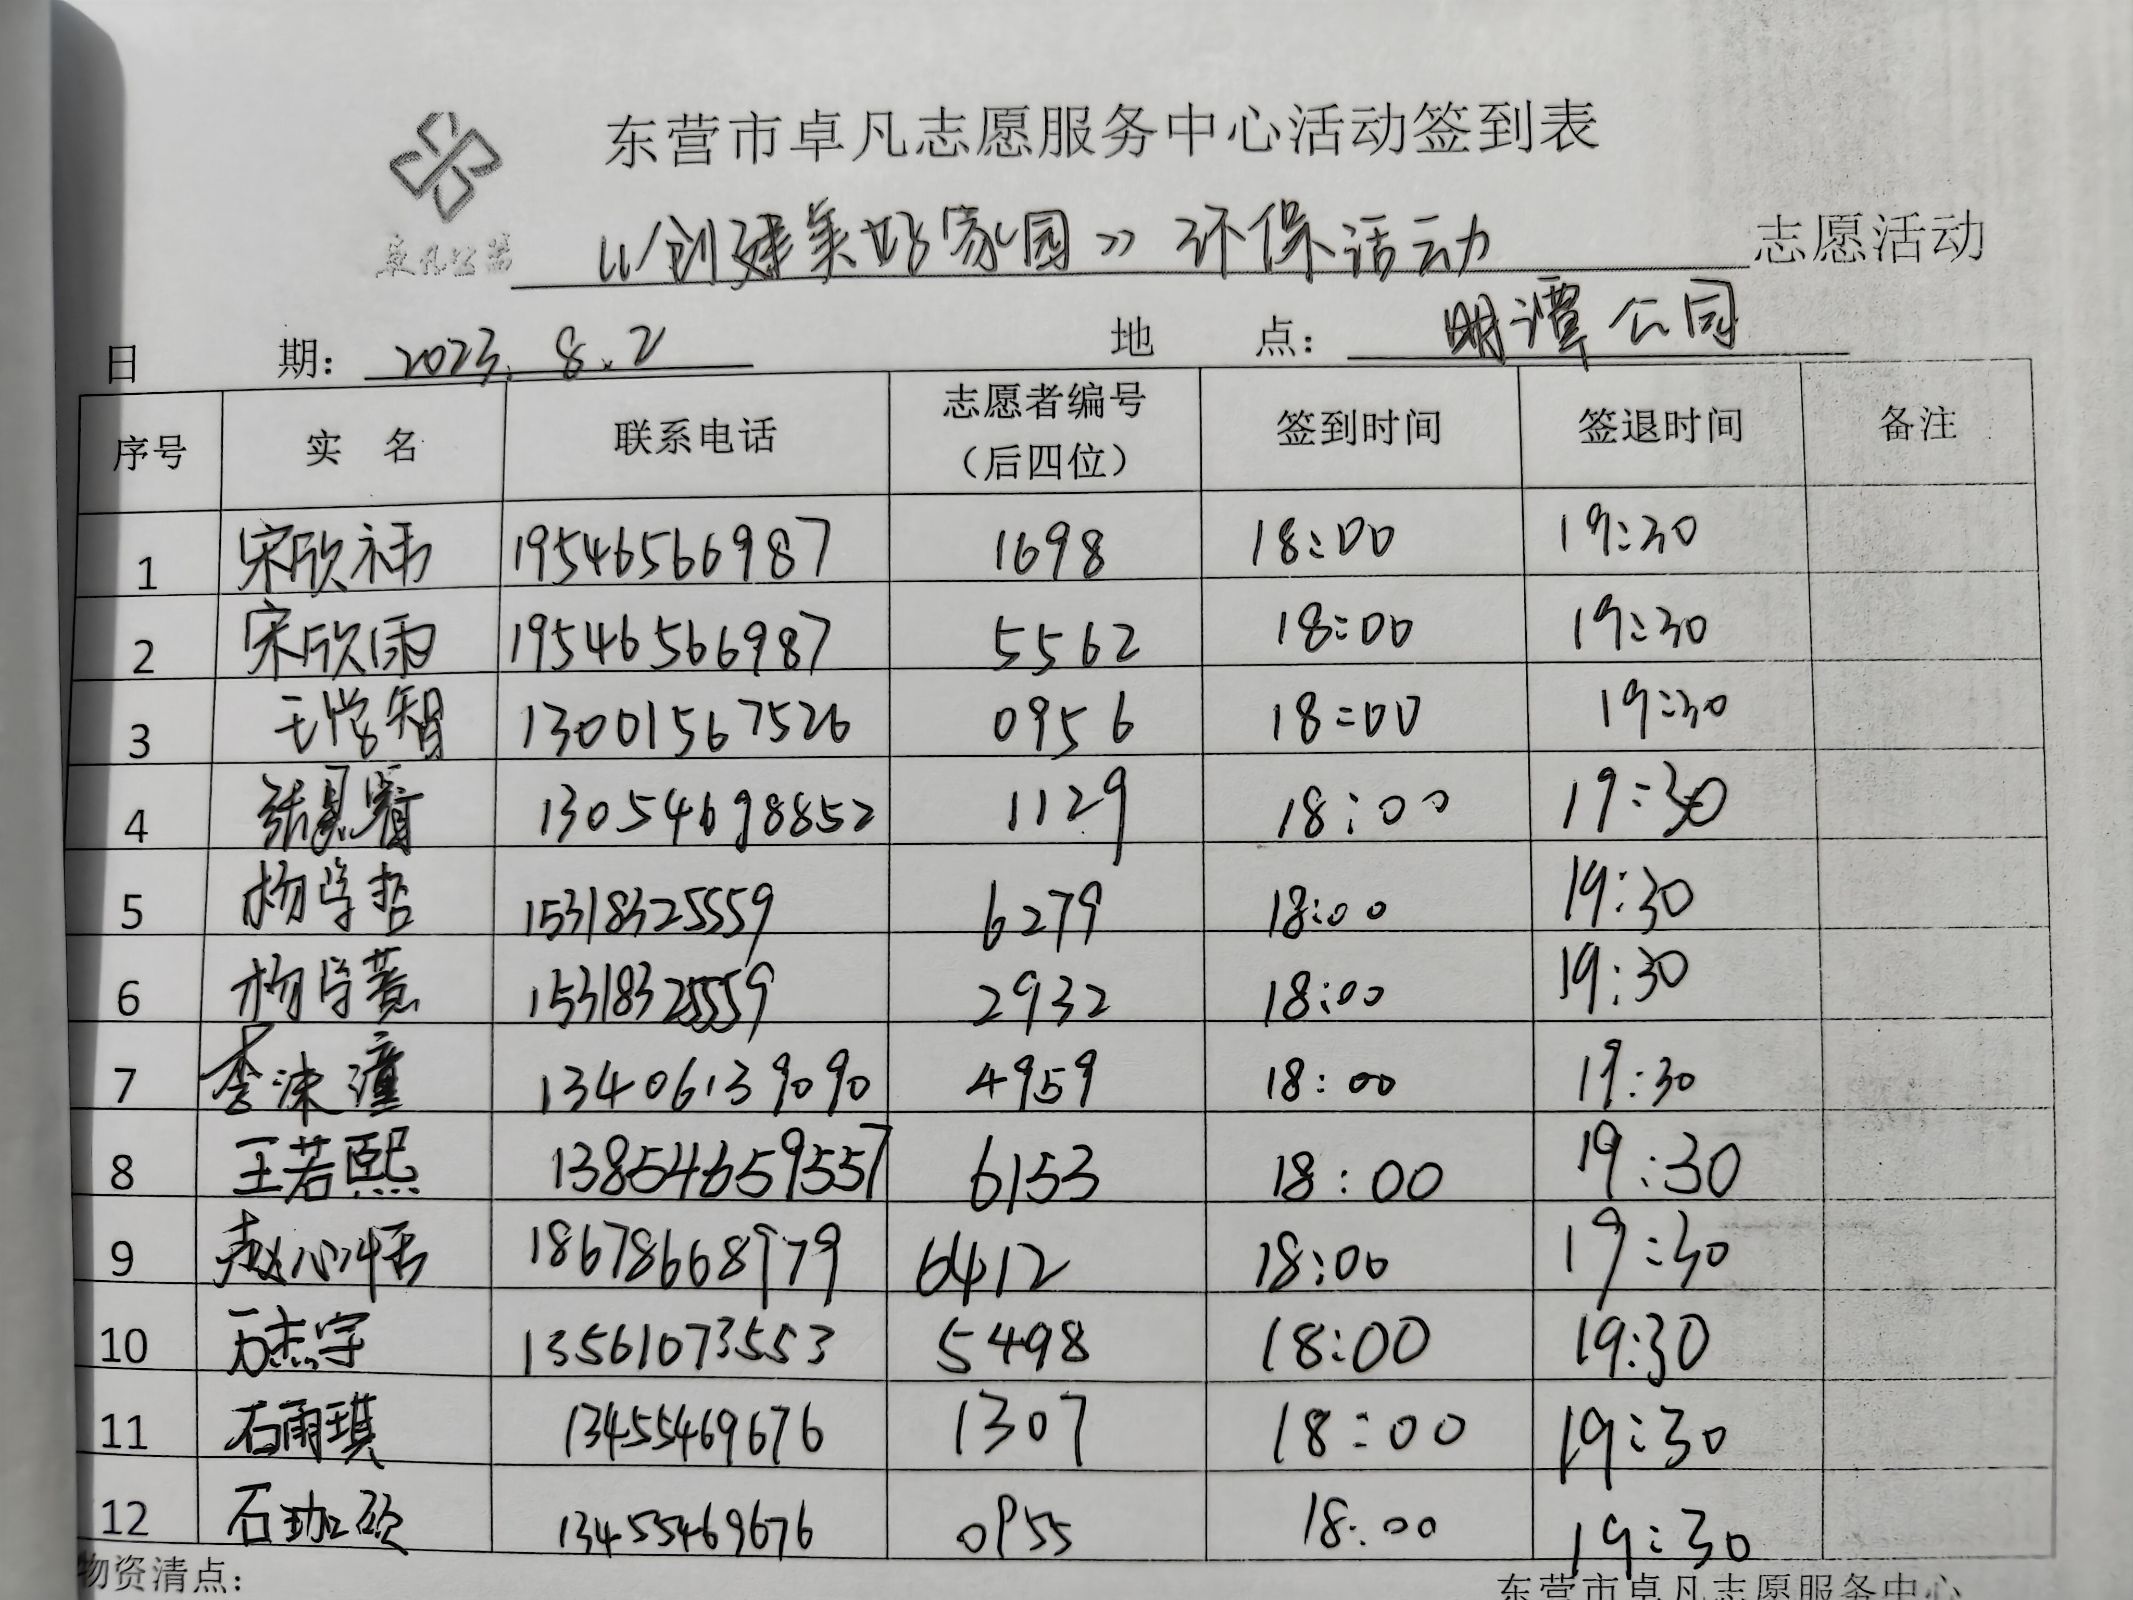 东营市卓凡志愿服务中心活动签到表
卓凡公益
“创建美好家园” 环保活动 志愿活动
日 期： 2023.8.2 地 点： 明潭公园
序号 实 名 联系电话 志愿者编号（后四位） 签到时间 签退时间 备注
1 宋欣祎 19546566987 1698 18:00 19:30
2 宋欣雨 19546566987 5562 18:00 19:30
3 王学智 13001567526 0956 18:00 19:30
4 张 13054698852 1129 18:00 19:30
5 杨学哲 15318325559 6279 18:00 19:30
6 杨学薏 15318325559 2932 18:00 19:30
7 李沫潼 13406139090 4959 18:00 19:30
8 王若熙 13854659557 6153 18:00 19:30
9 赵心恬 18678668979 6412 18:00 19:30
10 万杰宇 13561073553 5498 18:00 19:30
11 石雨琪 13455469676 1307 18:00 19:30
12 石珈硕 13455469676 0955 18:00 19:30
物资清点：
东营市卓凡志愿服务中心